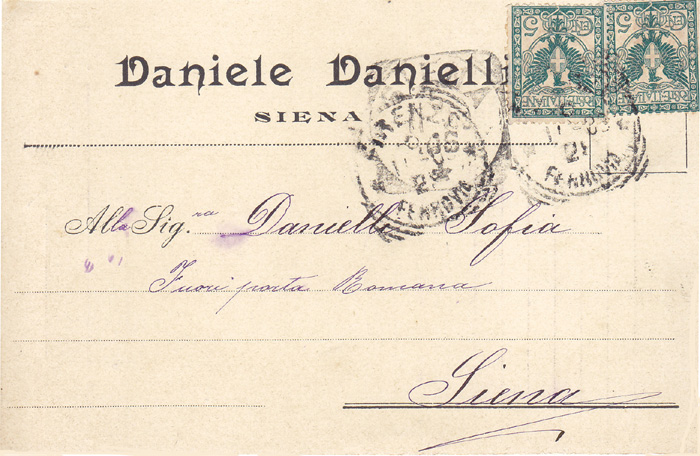 Daniele Danielli
SIENA
FIRENZE
FERROVIA
FERROVIA
Alla Sig.ra Danielli Sofia
Fuori porta Romana
Siena